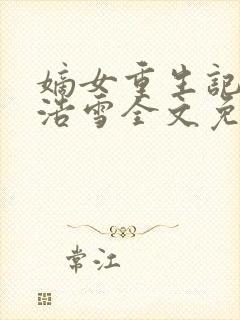 嫡女重生記
浩雪全文免
常江